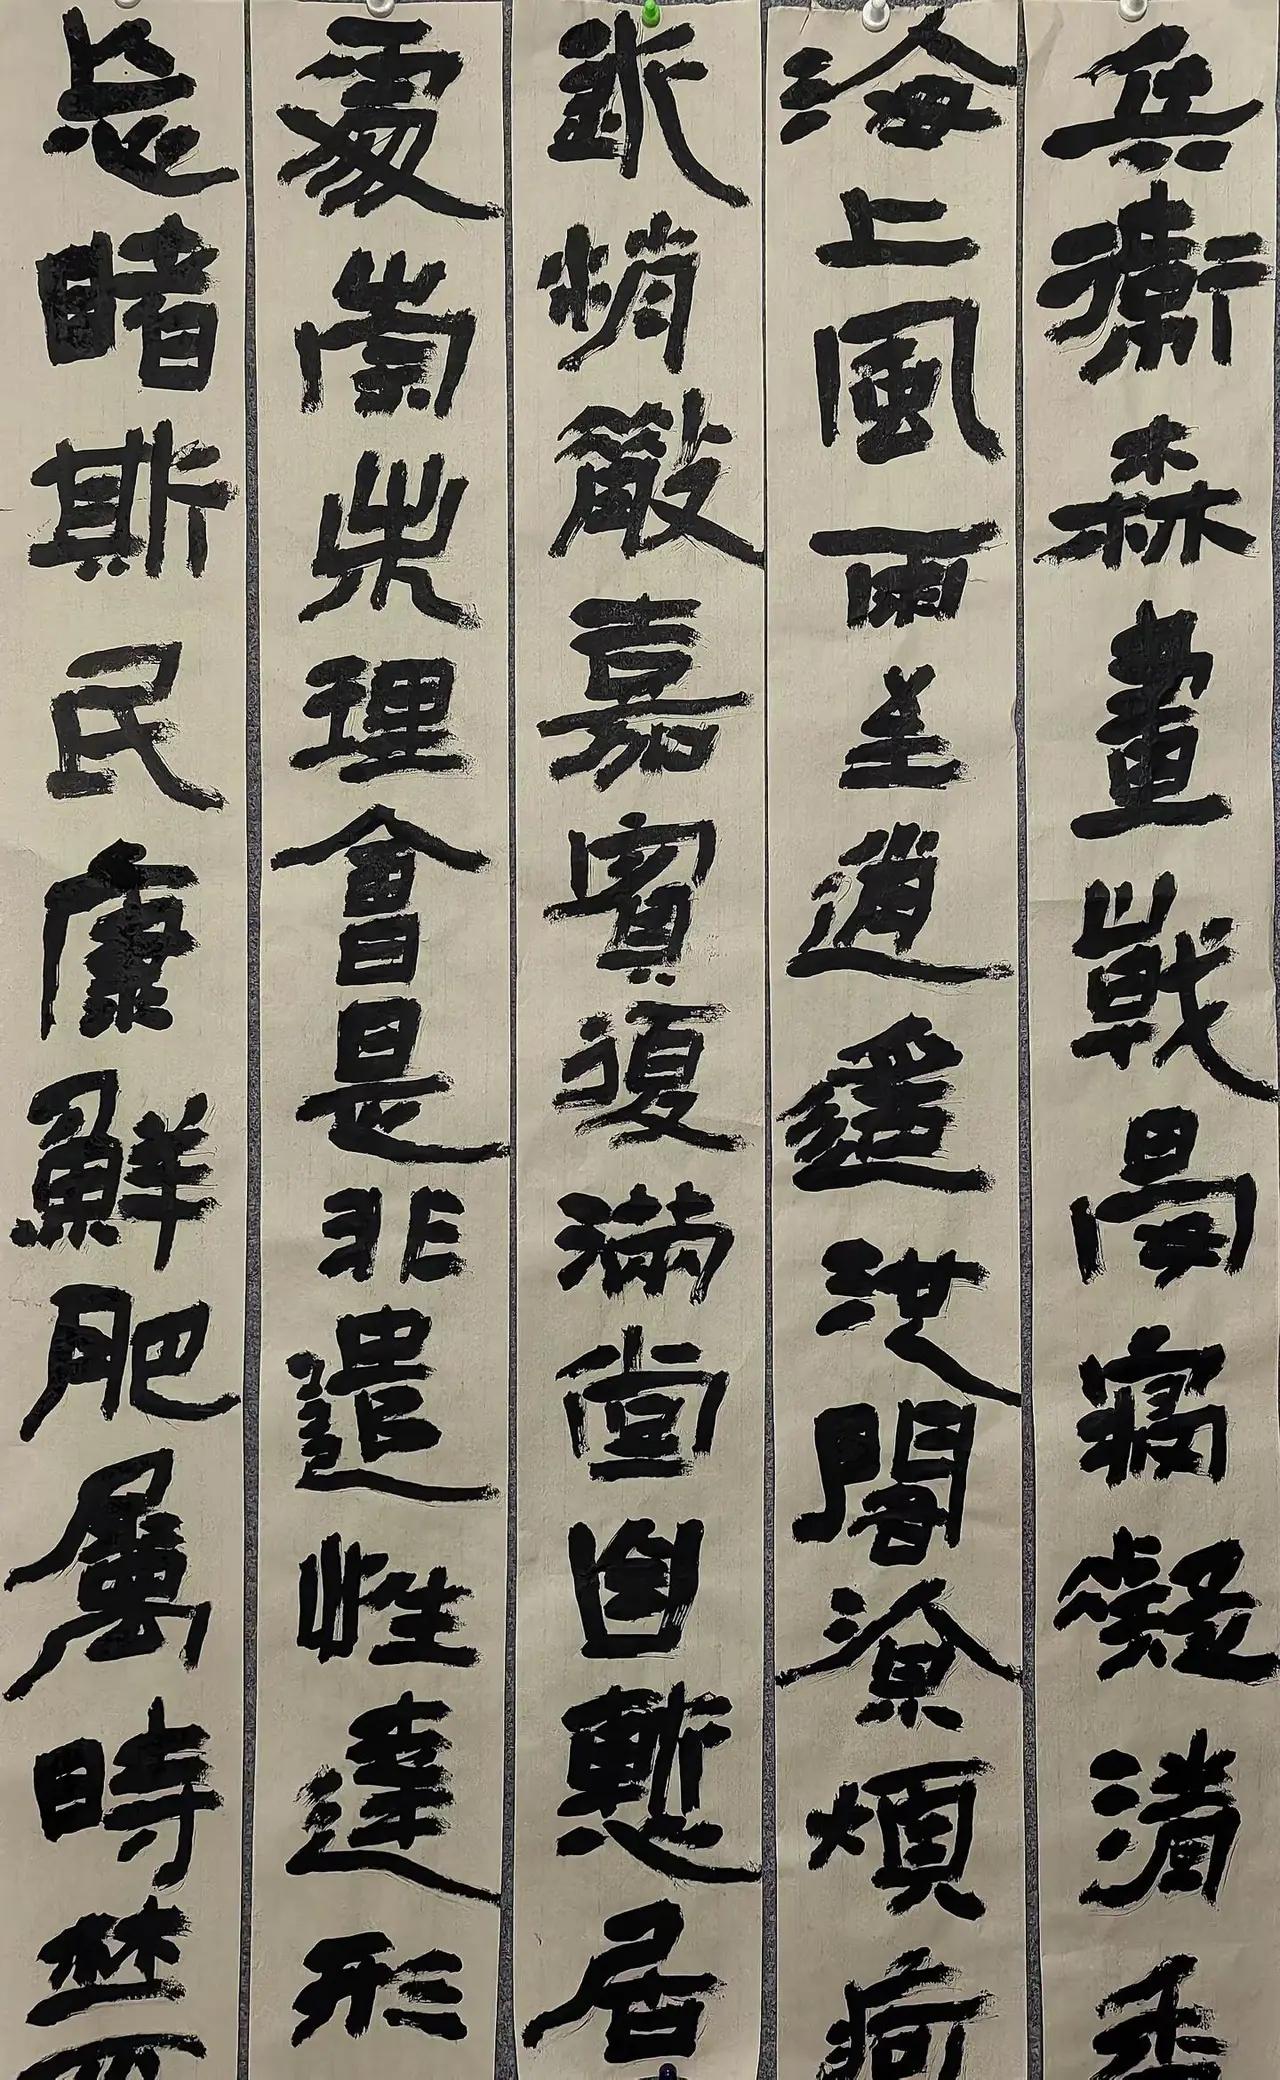 兵衛森畫戟宴寢凝清香
海上風雨至逍遥池閣涼煩疴
嘉賓復滿堂自慙居
處崇理會是非遣性達形
忘睹斯民康鮮肥屬時禁